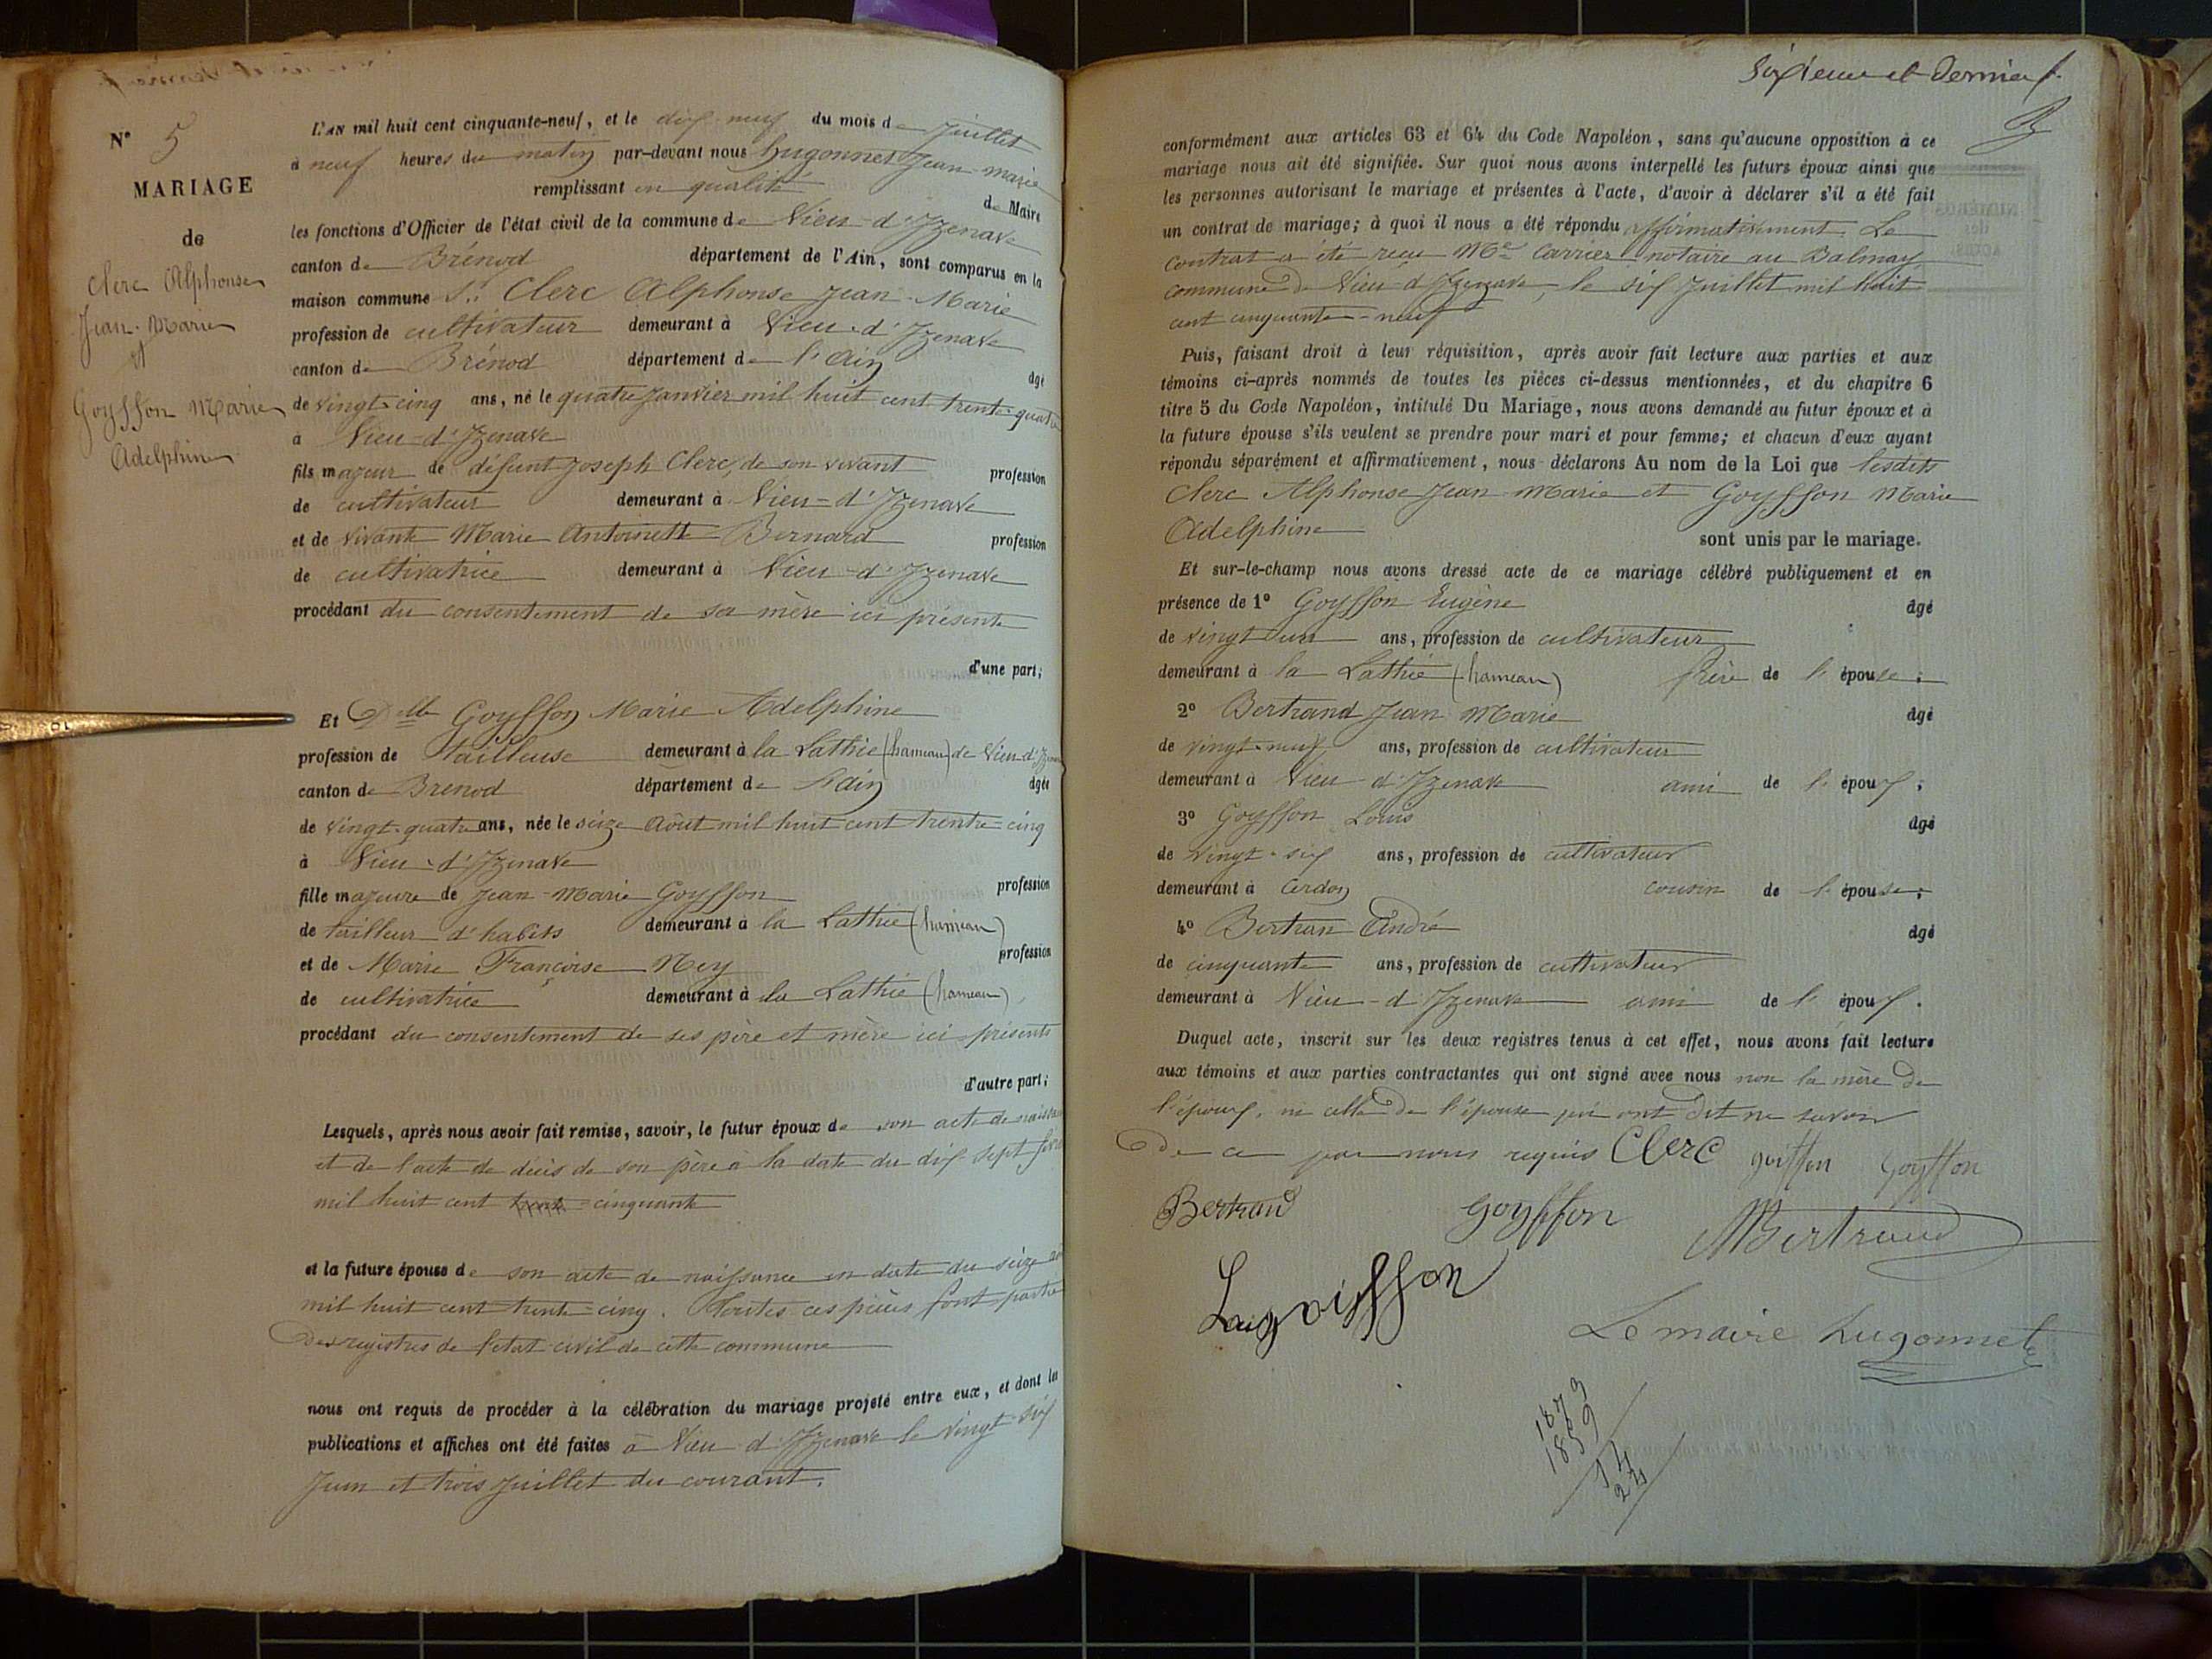 N° 5
MARIAGE
de
Clerc Alphonse
Jean-Marie
et
Goyffon Marie
Adelphine
L'AN mil huit cent cinquante-neuf, et le dix neuf du mois de Juillet
à neuf heures du matin par-devant nous Hugonnet Jean-marie
remplissant en qualité de Maire
les fonctions d'Officier de l'état civil de la commune de Vieu-d'Izenave
canton de Brénod département de l'Ain, sont comparus en la
maison commune Sr. Clerc Alphonse Jean-Marie
profession de cultivateur demeurant à Vieu-d'Izenave
canton de Brénod département de l'Ain âgé
de vingt-cinq ans, né le quatre Janvier mil huit cent trente-quatre
à Vieu-d'Izenave
fils majeur de défunt Joseph Clerc, de son vivant profession
de cultivateur demeurant à Vieu-d'Izenave
et de vivante Marie Antoinette Bernard profession
de cultivatrice demeurant à Vieu-d'Izenave
procédant du consentement de sa mère ici présente
d'une part;
Et Dlle Goyffon Marie Adelphine
profession de tailleuse demeurant à la Lathie (hameau) de Vieu d'Izen
canton de Brenod département de l'ain âgée
de vingt-quatre ans, née le seize Août mil huit cent trente-cinq
à Vieu-d'Izenave
fille majeure de Jean-Marie Goyffon profession
de tailleur d'habits demeurant à la Lathie (hameau)
et de Marie Françoise Ney profession
de cultivatrice demeurant à la Lathie (hameau)
procédant du consentement de ses père et mère ici présents
d'autre part;
Lesquels, après nous avoir fait remise, savoir, le futur époux de son acte de naissance
et de l'acte de décès de son père à la date du dix sept
mil huit cent trente cinquante
et la future épouse de son acte de naissance en date du seize
mil huit cent trente-cinq. Toutes ces pièces font partie
des registres de l'état civil de cette commune
nous ont requis de procéder à la célébration du mariage projeté entre eux, et dont les
publications et affiches ont été faites à Vieu d'Izenave le vingt-six
Juin et trois Juillet du courant.
Sixieme et Dernier f.
conformément aux articles 63 et 64 du Code Napoléon, sans qu'aucune opposition à ce
mariage nous ait été signifiée. Sur quoi nous avons interpellé les futurs époux ainsi que
les personnes autorisant le mariage et présentes à l'acte, d'avoir à déclarer s'il a été fait
un contrat de mariage; à quoi il nous a été répondu affirmativement. Le
contrat a été recu Me Carrier notaire au Balmay
commune de Vieu d'Izenave, le six Juillet mil huit
cent cinquante-neuf
Puis, faisant droit à leur réquisition, après avoir fait lecture aux parties et aux
témoins ci-après nommés de toutes les pièces ci-dessus mentionnées, et du chapitre 6
titre 5 du Code Napoléon, intitulé Du Mariage, nous avons demandé au futur époux et à
la future épouse s'ils veulent se prendre pour mari et pour femme; et chacun d'eux ayant
répondu séparément et affirmativement, nous déclarons Au nom de la Loi que lesdits
Clerc Alphonse Jean-Marie et Goyffon Marie
Adelphine
sont unis par le mariage.
Et sur-le-champ nous avons dressé acte de ce mariage célébré publiquement et en
présence de 1° Goyffon Eugène âgé
de vingt un ans, profession de cultivateur
demeurant à la Lathie (hameau) frère de l'épouse;
2° Bertrand Jean Marie âgé
de vingt-neuf ans, profession de cultivateur
demeurant à Vieu-d'Izenave ami de l'époux;
3° Goyffon Louis âgé
de vingt-six ans, profession de cultivateur
demeurant à Cerdon cousin de l'épouse;
4° Bertran André âgé
de cinquante ans, profession de cultivateur
demeurant à Vieu-d'Izenave ami de l'époux.
Duquel acte, inscrit sur les deux registres tenus à cet effet, nous avons fait lecture
aux témoins et aux parties contractantes qui ont signé avec nous non la mère de
l'époux, ni celle de l'épouse qui ont dit ne savoir
de ce par nous requis Clerc goiffon Goyffon
Bertrand Goyffon Bertrand
Louis goiffon
Le maire hugonnet
1873
1859
14
24